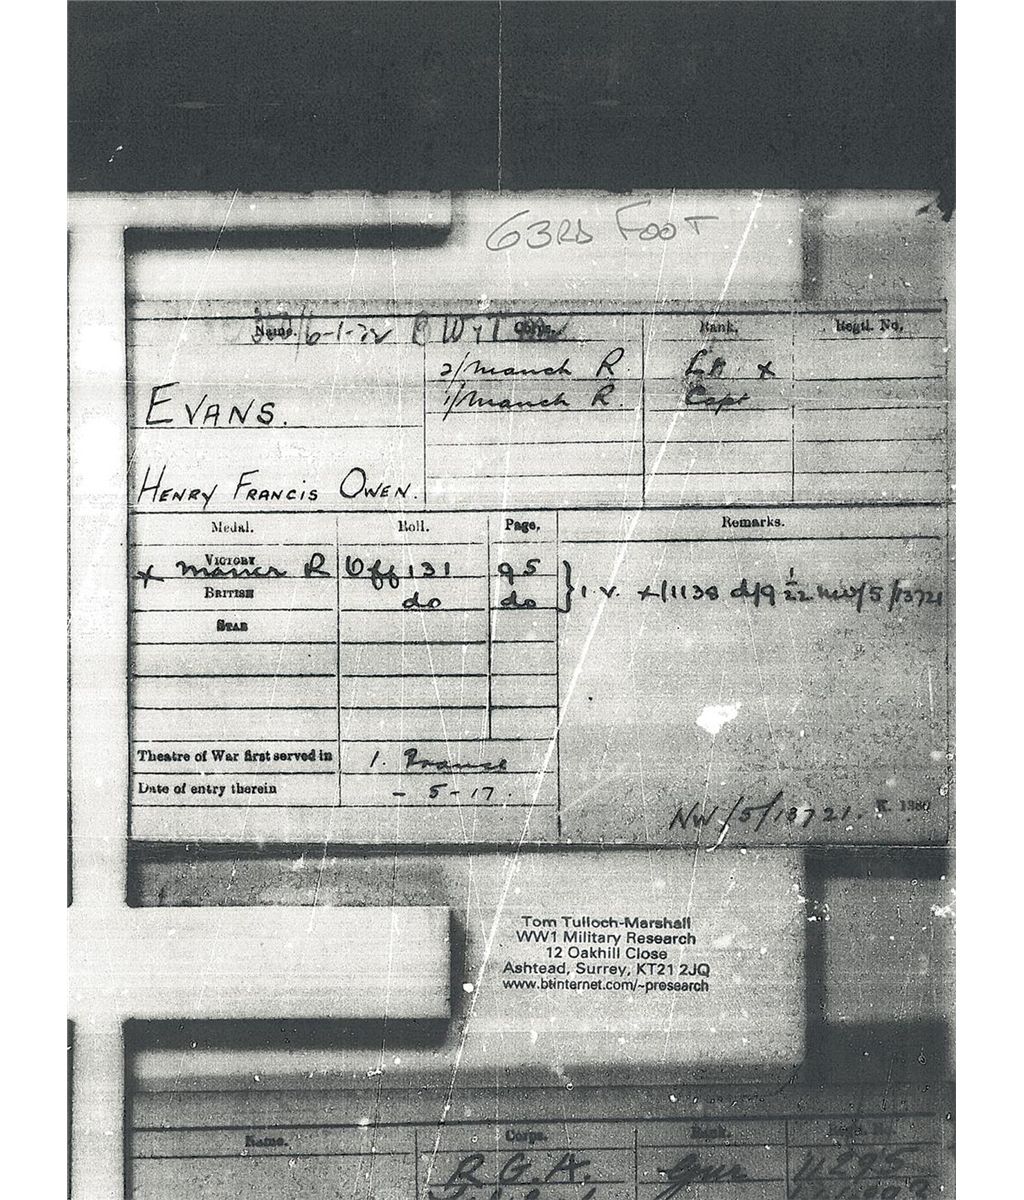 63RD FOOT
Name. Corps. Rank. Regtl. No.
6-1-22
2/Manch R. Lt. x
1/Manch R. Capt
EVANS.
HENRY FRANCIS OWEN.
Medal. Roll. Page. Remarks.
VICTORY
x Manch R Off 131 95
BRITISH do do
} 1 V. x/1138 d/9 1/22 NW/5/13721
STAR
Theatre of War first served in 1. France
Date of entry therein - 5-17.
NW/5/13721. K. 1380
Tom Tulloch-Marshall
WW1 Military Research
12 Oakhill Close
Ashtead, Surrey, KT21 2JQ
www.btinternet.com/~presearch
Name. Corps. Rank.
R.G.A. Gnr 11295